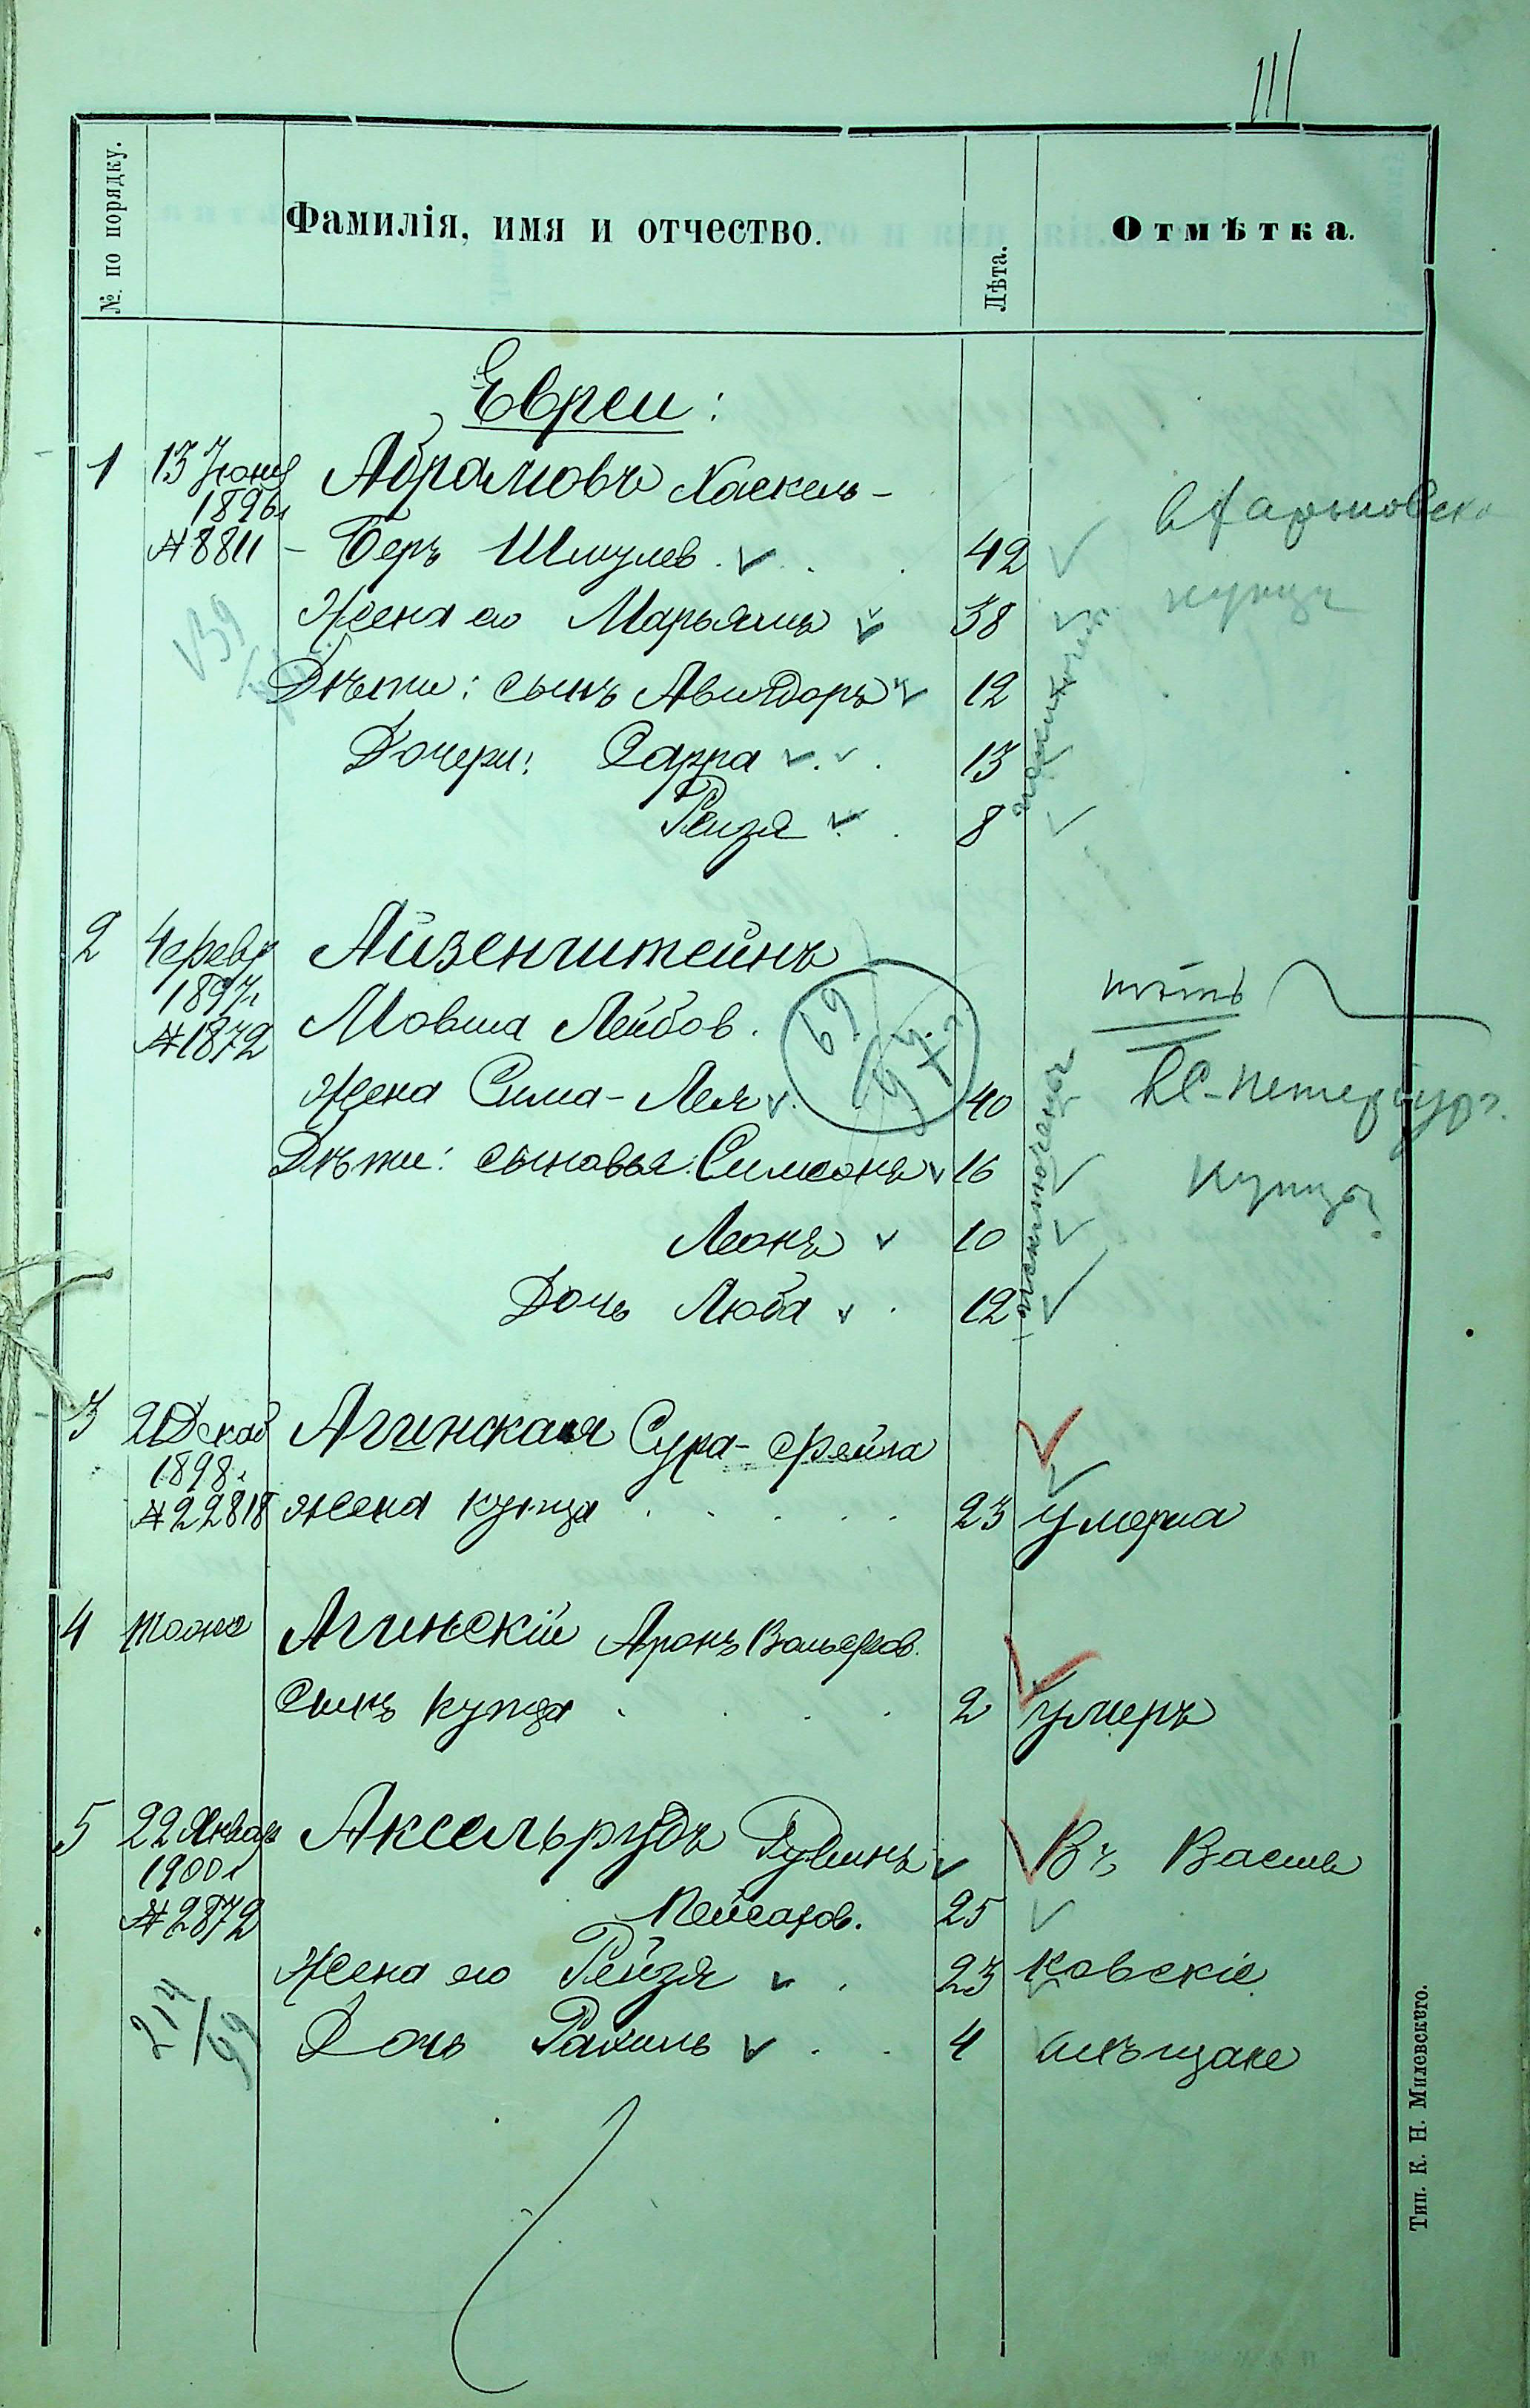 III
№. по порядку.
Фамилія, имя и отчество.
Лѣта.
Отмѣтка.
Евреи:
1 13 Іюня Абрамовъ Хаскель-
1896г
№8811 - Беръ Шмулев. 42
Жена его Марьямъ 38
Дѣти: сынъ Авигдоръ 12
Дочери: Сарра 13
Рейзя 8
исключены
въ Харьковск
купцы
139
2 4 февр Айзенштейнъ
1897г
№1872 Мовша Лейбов.
Жена Сима-Лея 40
Дѣти: сыновья: Симеонъ 16
Леонъ 10
Дочь Люба 12
исключены
69
нѣтъ
въ С-Петербург.
купцы
3 21 Декаб Агинская Сура-Фейга
1898г.
№22818 жена купца 23 умерла
4 тоже Агинскій Аронъ Вольфов.
Сынъ купца 2 умеръ
5 22 Январ Аксельрудъ Рувинъ Въ Васи
1900г
№2872 Пейсахов. 25
Жена его Рейзя 23 ковскіе
214/99 Дочь Рахиль 4 мѣщане
Тип. К. Н. Милевскаго.